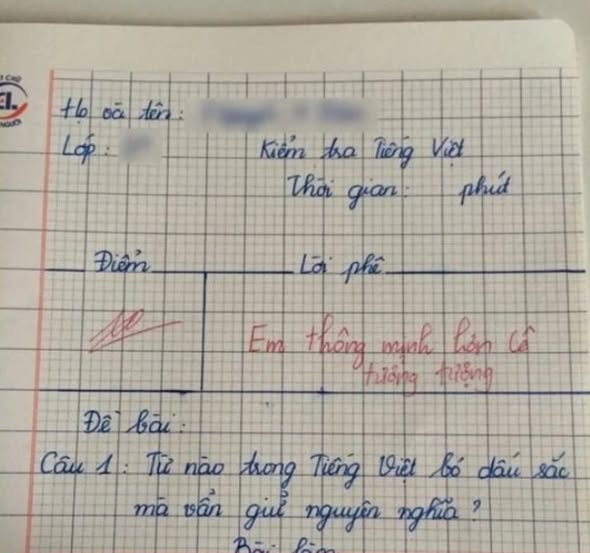 Họ và tên:
Lớp:
Kiểm tra Tiếng Việt
Thời gian: phút
Điểm
Lời phê
10
Em thông minh hơn cô
tưởng tượng
Đề bài:
Câu 1: Từ nào trong Tiếng Việt bỏ dấu sắc
mà vẫn giữ nguyên nghĩa?
Bài làm